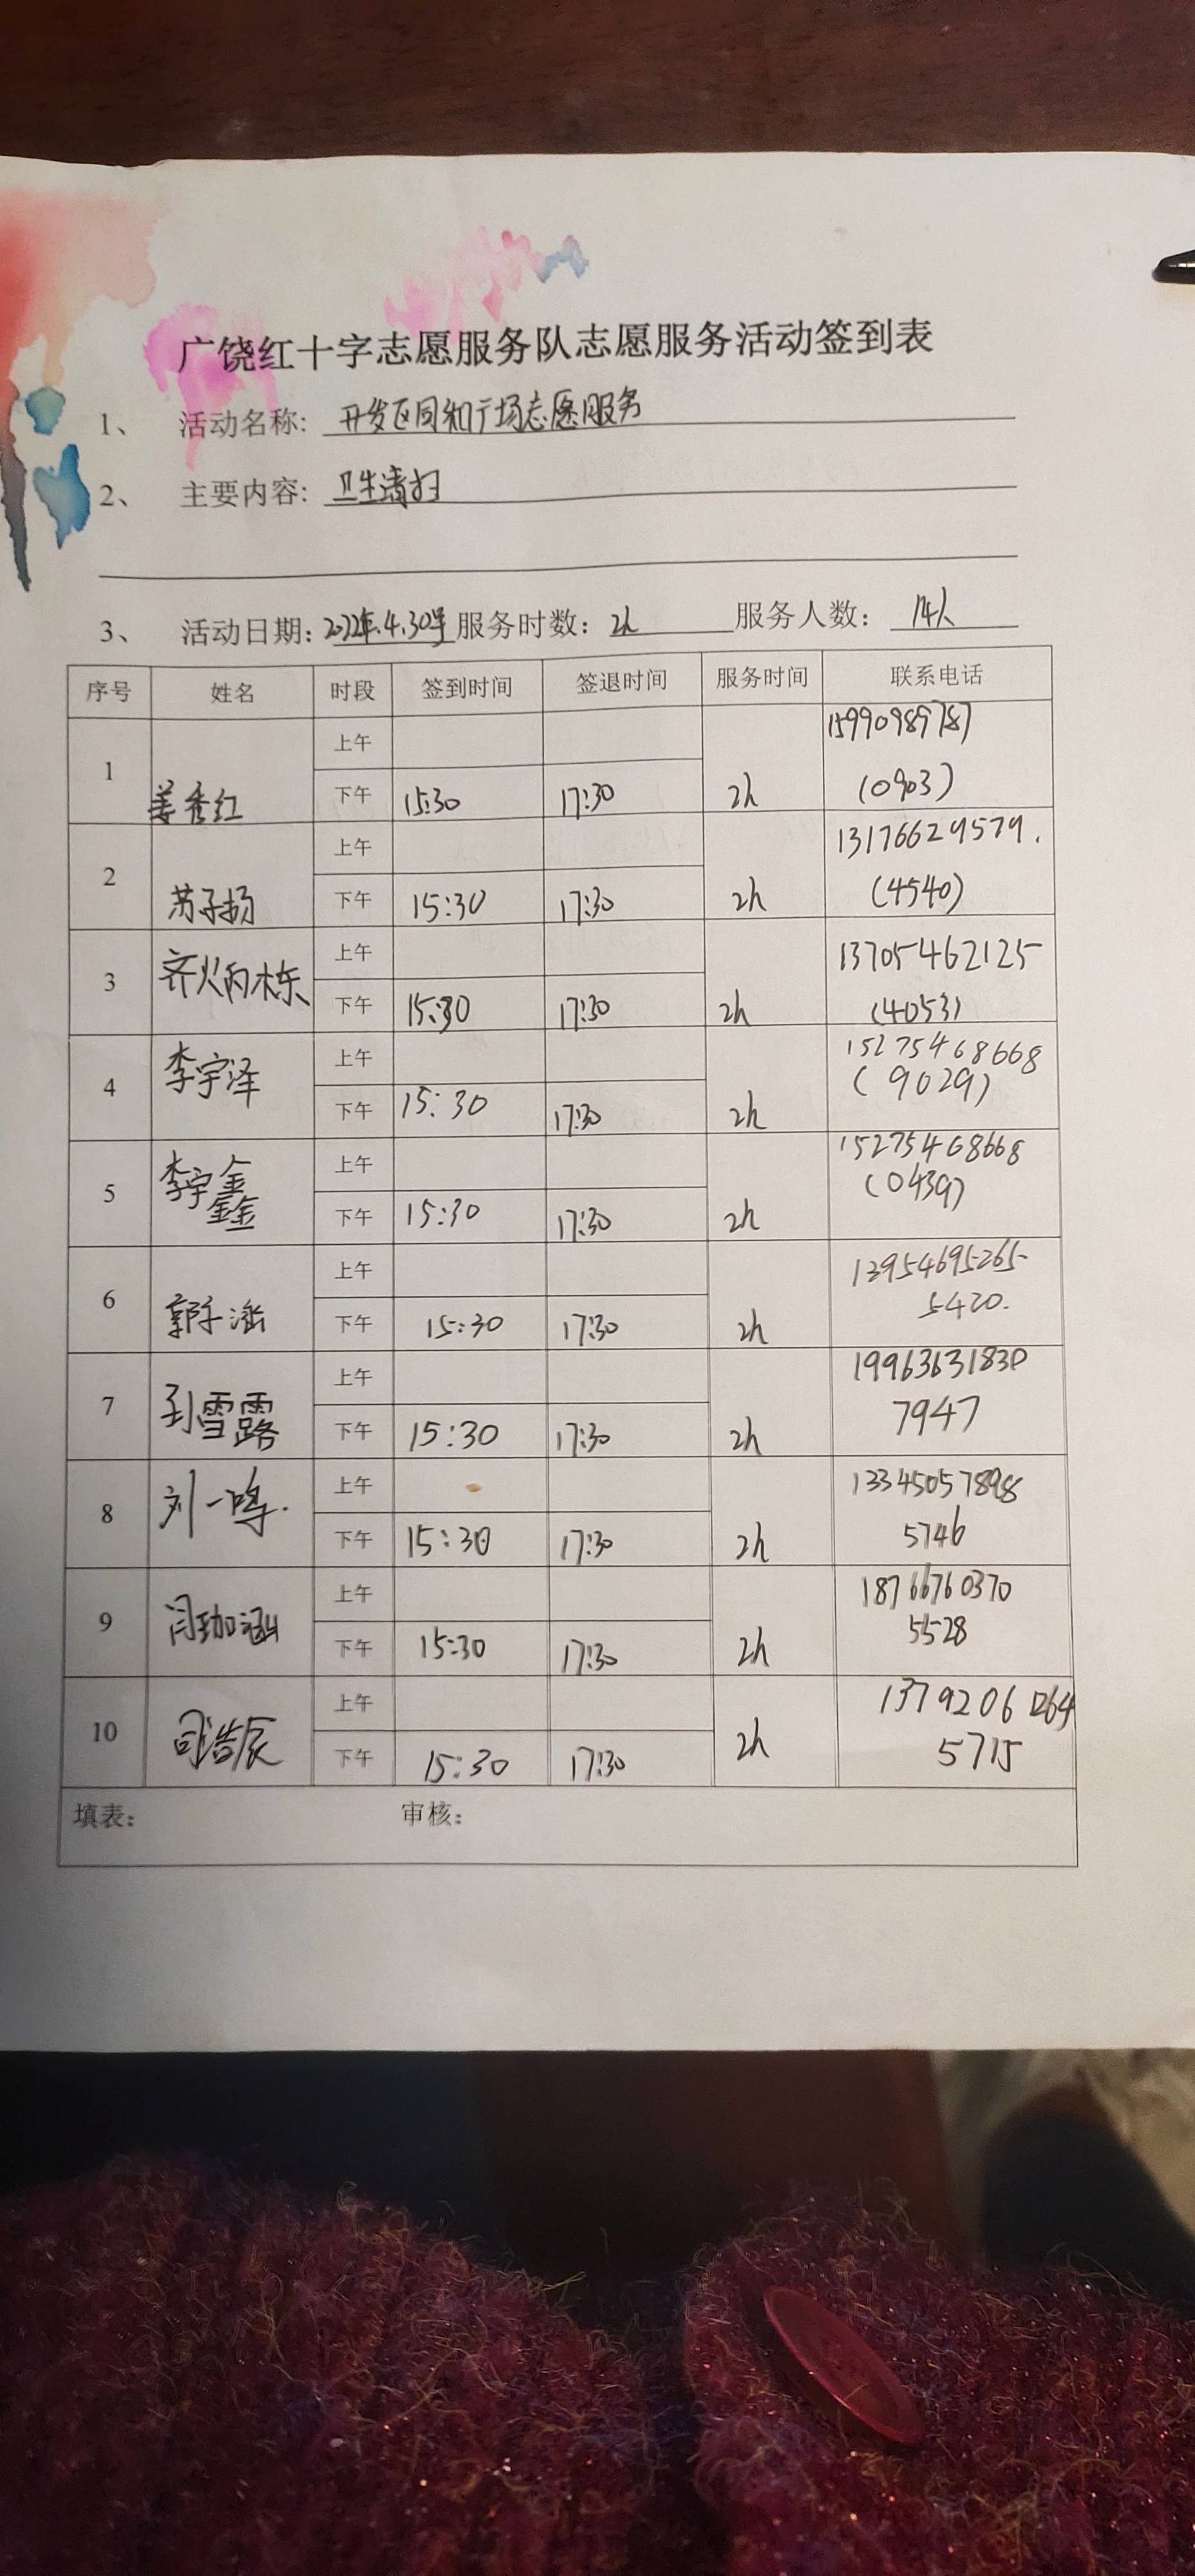 广饶红十字志愿服务队志愿服务活动签到表
1、 活动名称: 开发区同和广场志愿服务
2、 主要内容: 卫生清扫
3、 活动日期: 2022年.4.30号 服务时数: 2h 服务人数: 14人
序号 姓名 时段 签到时间 签退时间 服务时间 联系电话
上午 15990989787
1 姜秀红 下午 15:30 17:30 2h (0903)
上午 13176629579.
2 苏子扬 下午 15:30 17:30 2h (4540)
上午 13705462125
3 齐炳栋 下午 15:30 17:30 2h (4053)
上午 15275468668
4 李宇泽 下午 15:30 17:30 2h (9029)
上午 15275468668
5 李宇鑫 下午 15:30 17:30 2h (0439)
上午 13954695265
6 郭子涵 下午 15:30 17:30 2h 5420.
上午 19963631830
7 刘雪露 下午 15:30 17:30 2h 7947
上午 13345057898
8 刘一鸣. 下午 15:30 17:30 2h 5746
上午 18766760370
9 闫珈涵 下午 15:30 17:30 2h 5528
上午 13792061264
10 司浩辰 下午 15:30 17:30 2h 5715
填表: 审核: